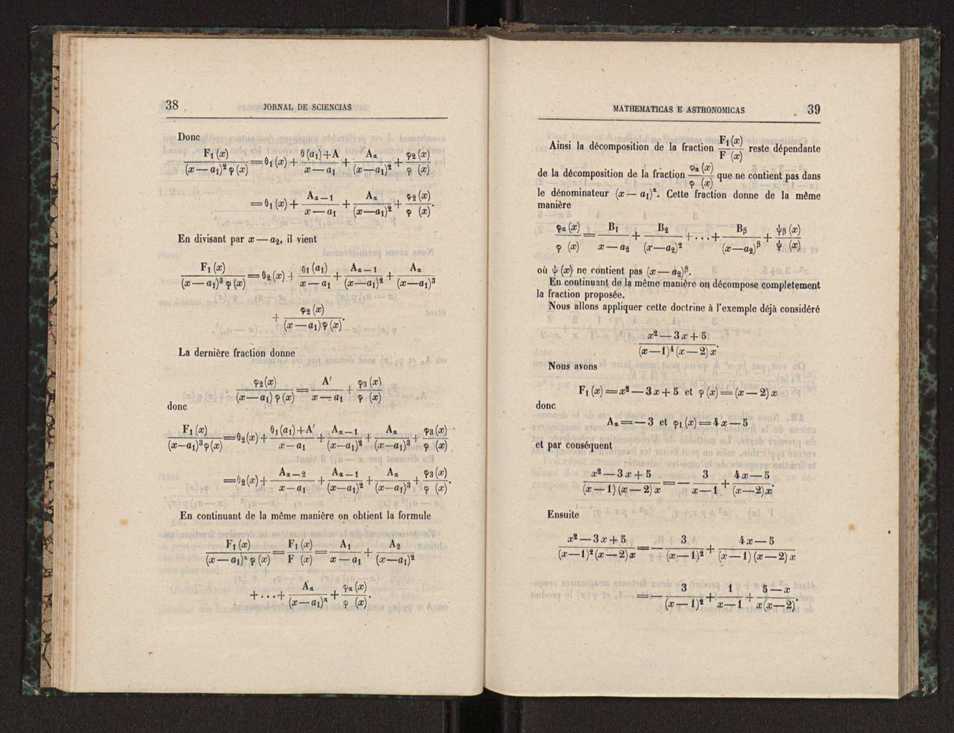 38
JORNAL DE SCIENCIAS
Donc
F₁(x) / (x—a₁)² φ(x) = θ₁(x) + (θ(a₁)+A) / (x—a₁) + Aₐ / (x—a₁)² + φ₂(x) / φ(x)
= θ₁(x) + Aₐ₋₁ / (x—a₁) + Aₐ / (x—a₁)² + φ₂(x) / φ(x).
En divisant par x—a₂, il vient
F₁(x) / (x—a₁)³ φ(x) = θ₂(x) + θ₁(a₁) / (x—a₁) + Aₐ₋₁ / (x—a₁)² + Aₐ / (x—a₁)³
+ φ₂(x) / (x—a₁)φ(x).
La dernière fraction donne
φ₂(x) / (x—a₁)φ(x) = A′ / (x—a₁) + φ₃(x) / φ(x)
donc
F₁(x) / (x—a₁)³φ(x) = θ₂(x) + (θ₁(a₁)+A′) / (x—a₁) + Aₐ₋₁ / (x—a₁)² + Aₐ / (x—a₁)³ + φ₃(x) / φ(x)
= θ₂(x) + Aₐ₋₂ / (x—a₁) + Aₐ₋₁ / (x—a₁)² + Aₐ / (x—a₁)³ + φ₃(x) / φ(x).
En continuant de la même manière on obtient la formule
F₁(x) / (x—a₁)ᵅ φ(x) = F₁(x) / F(x) = A₁ / (x—a₁) + A₂ / (x—a₁)²
+ ... + Aₐ / (x—a₁)ᵅ + φₐ(x) / φ(x).
MATHEMATICAS E ASTRONOMICAS
39
Ainsi la décomposition de la fraction F₁(x) / F(x) reste dépendante
de la décomposition de la fraction φₐ(x) / φ(x) que ne contient pas dans
le dénominateur (x—a₁)ᵅ. Cette fraction donne de la même
manière
φₐ(x) / φ(x) = B₁ / (x—a₂) + B₂ / (x—a₂)² + ... + Bᵦ / (x—a₂)ᵝ + ψᵦ(x) / ψ(x)
où ψ(x) ne contient pas (x—a₂)ᵝ.
En continuant de la même manière on décompose completement
la fraction proposée.
Nous allons appliquer cette doctrine à l'exemple déjà considéré
(x²—3x+5) / (x—1)⁴(x—2)x.
Nous avons
F₁(x)=x²—3x+5 et φ(x)=(x—2)x
donc
Aₐ=—3 et φ₁(x)=4x—5
et par conséquent
(x²—3x+5) / (x—1)(x—2)x = — 3 / (x—1) + (4x—5) / (x—2)x.
Ensuite
(x²—3x+5) / (x—1)²(x—2)x = — 3 / (x—1)² + (4x—5) / (x—1)(x—2)x
= — 3 / (x—1)² + 1 / (x—1) + (5—x) / x(x—2).